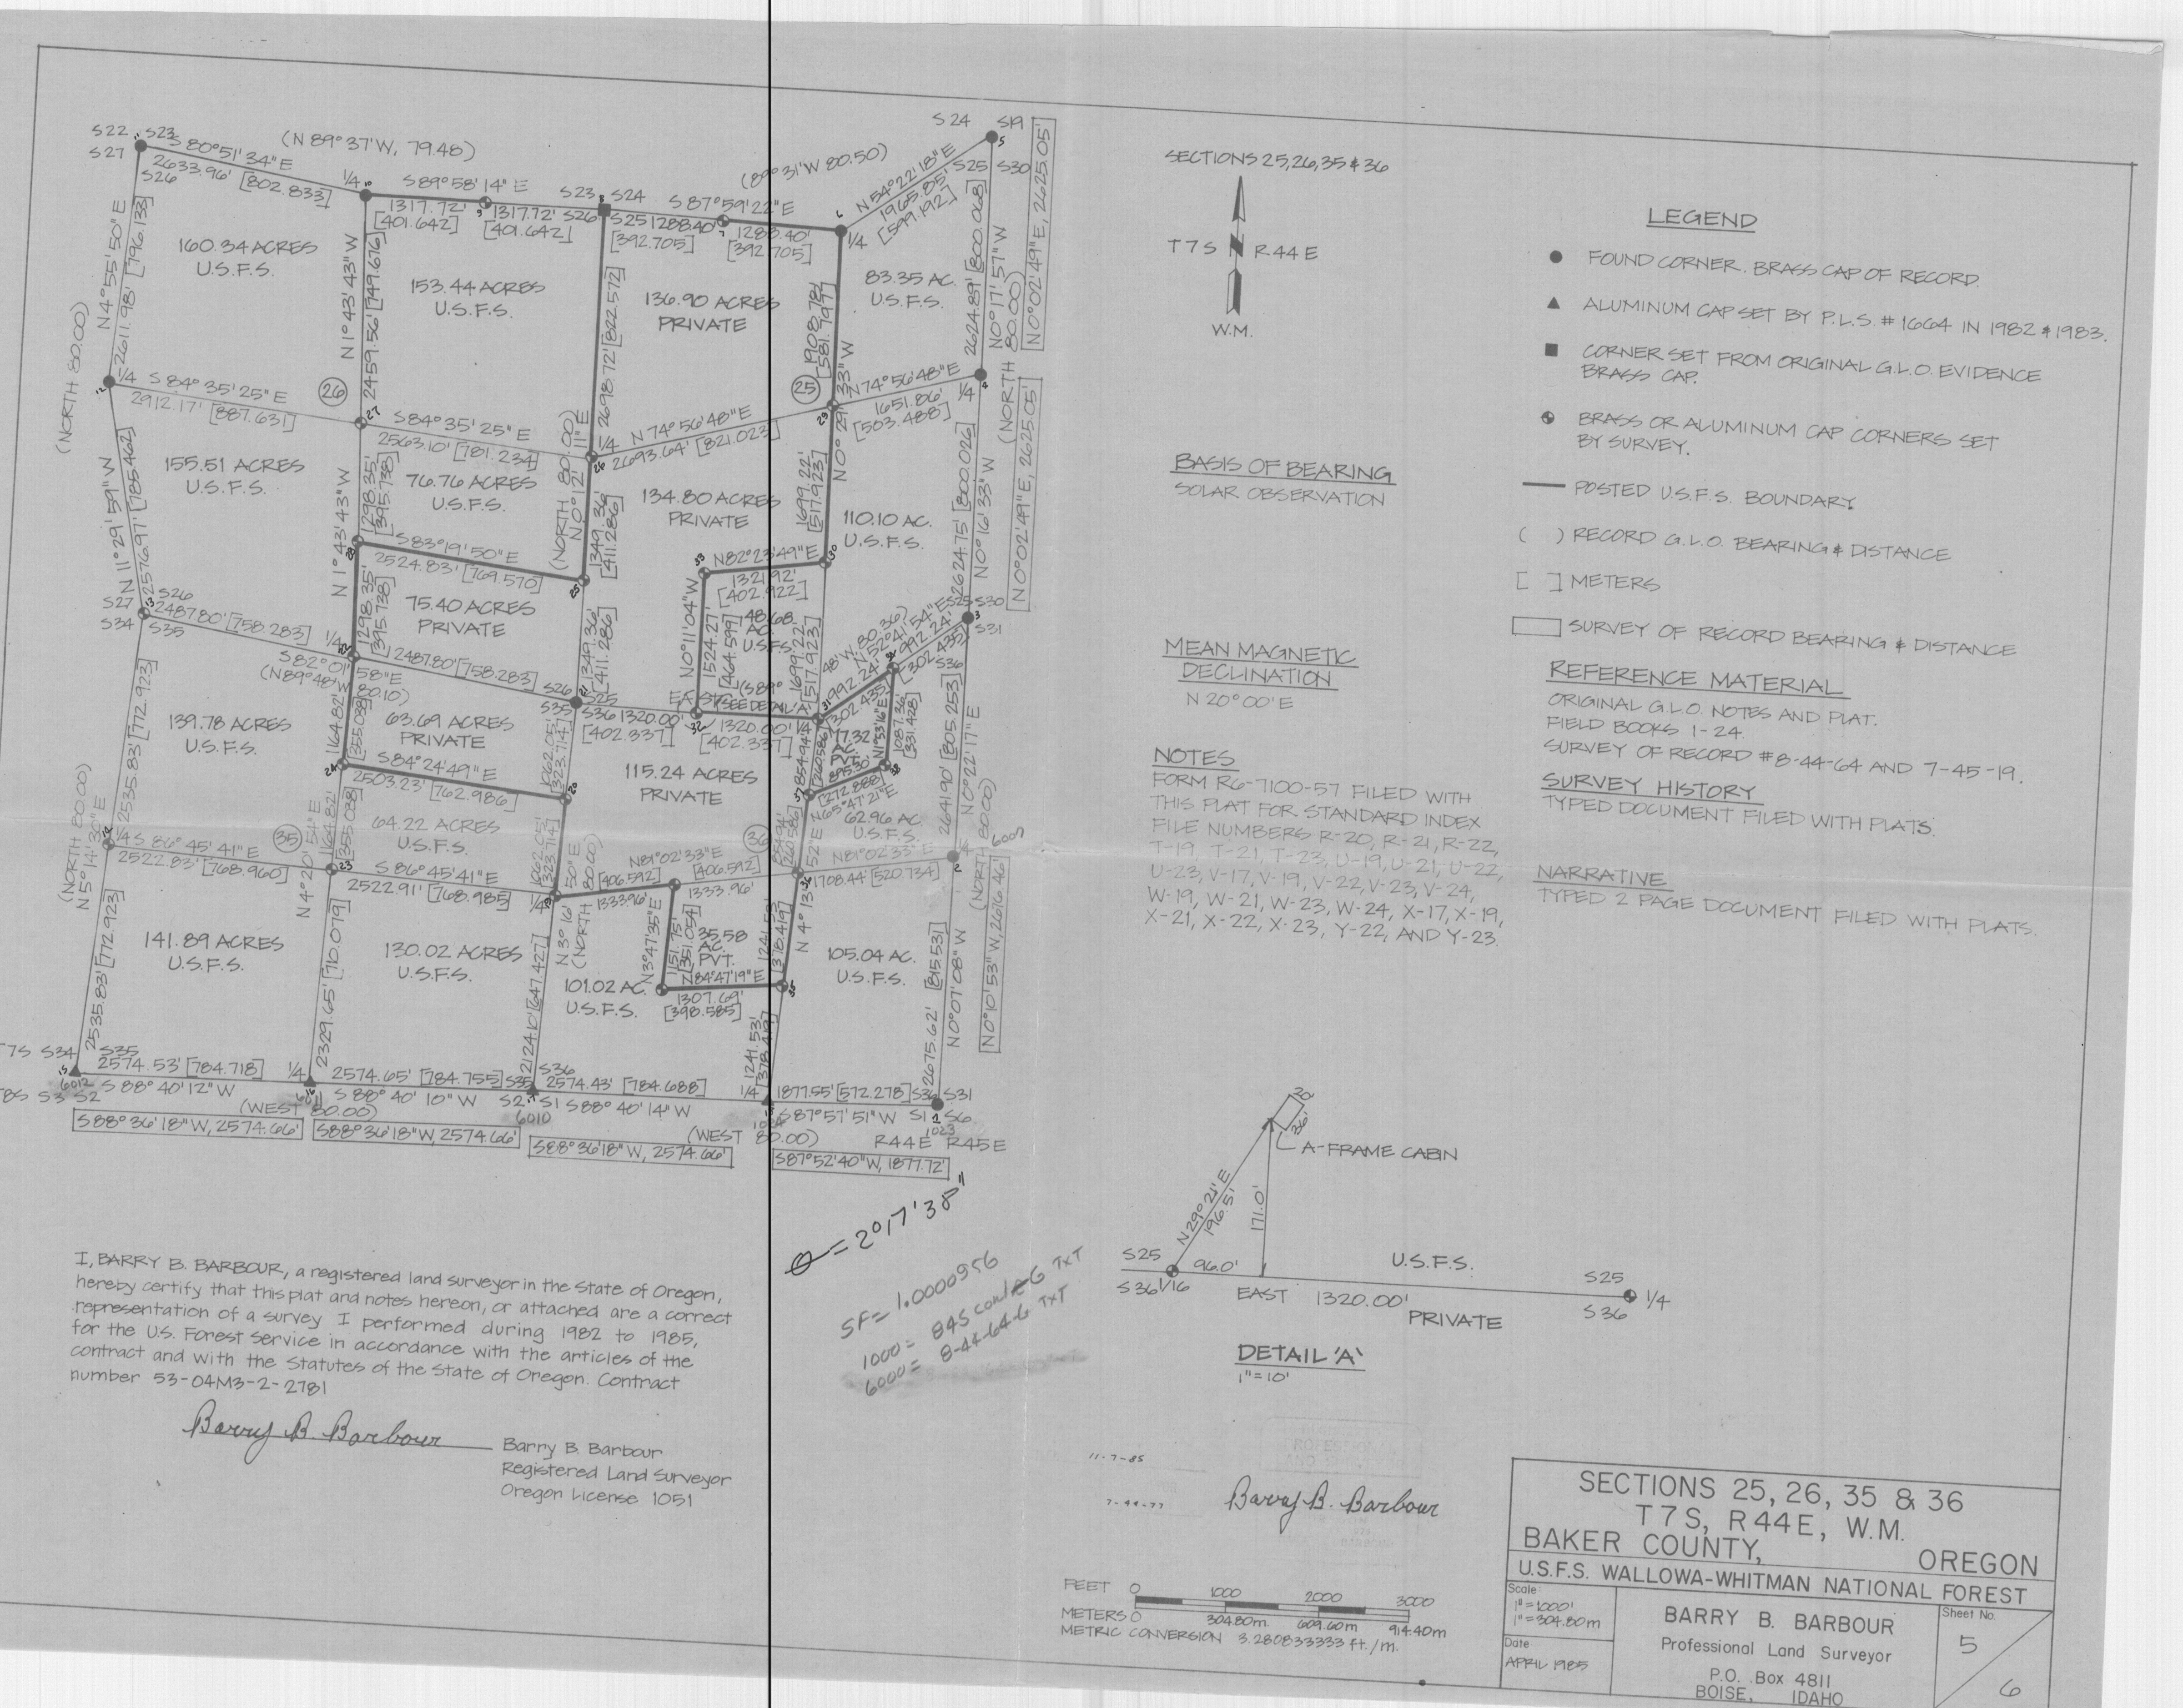 S22 S23
S27
S26
S 80°51'34" E
2633.96' [802.833]
(N 89°37'W, 79.48)
1/4
S 89°58'14" E
1317.72'
[401.642]
1317.72'
[401.642]
S23 S24
S26 S25
S 87°59'22" E
1288.40'
[392.705]
1288.40'
[392.705]
1/4
N 54°22'18" E
1965.85'
[599.192]
S24 S19
S25 S30
N 0°02'49" E, 2625.05'
160.34 ACRES
U.S.F.S.
N 4°55'50" E
2611.98' [796.133]
(NORTH 80.00)
N 1°43'43" W
2459.56' [749.676]
153.44 ACRES
U.S.F.S.
2698.72' [822.572]
136.90 ACRES
PRIVATE
1908.78'
[581.797]
83.35 AC.
U.S.F.S.
2624.89' [800.068]
N 0°17'57" W
(NORTH 80.00)
1/4 S 84°35'25" E
2912.17' [887.631]
26
27
S 84°35'25" E
2563.10' [781.234]
1/4
N 74°56'48" E
2693.64' [821.023]
25
N 0°29'33" W
N 74°56'48" E
1651.86'
[503.488]
1/4
N 11°29'59" W
2576.97' [785.462]
155.51 ACRES
U.S.F.S.
N 1°43'43" W
1298.35'
[395.738]
76.76 ACRES
U.S.F.S.
(NORTH 80.00)
N 0°12'11" E
1349.36'
[411.286]
134.80 ACRES
PRIVATE
1699.22'
[517.923]
110.10 AC.
U.S.F.S.
2624.75' [800.026]
N 0°16'33" W
N 0°02'49" E, 2625.05'
S 83°19'50" E
2524.83' [769.570]
N 82°23'49" E
1321.92'
[402.922]
75.40 ACRES
PRIVATE
1298.35'
[395.738]
1349.36'
[411.286]
N 0°11'04" W
1524.27'
[464.599]
48.68
AC.
U.S.F.S.
1699.22'
[517.923]
S27 S26
S34 S35
2487.80' [758.283]
1/4
S 82°01'58" E
(N 89°48'W
80.10)
2487.80' [758.283]
S26 S25
S35 S36
1320.00'
[402.337]
EAST
SEE DETAIL 'A'
1320.00'
[402.337]
1/4
N 52°41'54" E
992.24'
[302.435]
992.24'
[302.435]
S25 S30
S36 S31
139.78 ACRES
U.S.F.S.
2535.83' [772.923]
1164.82'
[355.038]
63.69 ACRES
PRIVATE
1062.05'
[323.714]
S 84°24'49" E
2503.23' [762.986]
115.24 ACRES
PRIVATE
N 1°33'16" E
1087.36'
[331.428]
895.30'
[272.888]
62.96 AC.
U.S.F.S.
2641.90' [805.253]
N 0°22'17" E
(NORTH 80.00)
(NORTH 80.00)
N 5°14'30" E
1/4 S 86°45'41" E
2522.83' [768.960]
35
N 4°20'54" E
1164.82'
[355.038]
64.22 ACRES
U.S.F.S.
S 86°45'41" E
2522.91' [768.985]
1/4
1062.05'
[323.714]
36
N 81°02'33" E
[406.592]
1333.96'
[406.592]
1333.96'
N 81°02'33" E
1708.44' [520.734]
1/4
6005
2535.83' [772.923]
141.89 ACRES
U.S.F.S.
2329.65' [710.079]
130.02 ACRES
U.S.F.S.
2124.10' [647.427]
N 3°16'50" E
(NORTH 80.00)
101.02 AC.
U.S.F.S.
N 3°47'35" E
1151.75'
[351.054]
35.58
AC.
PVT.
N 84°47'19" E
1307.69'
[398.585]
1241.53'
[378.419]
N 4°13'52" E
105.04 AC.
U.S.F.S.
2675.62' [815.53]
N 0°07'08" W
(NORTH
N 0°10'53" W, 2616.46'
S34 S35
S3 S2
6012
2574.53' [784.718]
S 88°40'12" W
1/4
2574.65' [784.755]
S 88°40'10" W
(WEST 80.00)
S35 S36
S2 S1
6010
2574.43' [784.688]
S 88°40'14" W
1/4
1241.53'
1877.55' [572.278]
S 87°57'51" W
(WEST 80.00)
S36 S31
S1 S6
1023
R44E R45E
S 88°36'18" W, 2574.66'
S 88°36'18" W, 2574.66'
S 88°36'18" W, 2574.66'
S 87°52'40" W, 1877.72'
θ = 2°17'38"
SF = 1.0000956
6000 = 8-44-64-G TXT
I, BARRY B. BARBOUR, a registered land surveyor in the State of Oregon,
hereby certify that this plat and notes hereon, or attached are a correct
representation of a survey I performed during 1982 to 1985,
for the U.S. Forest Service in accordance with the articles of the
contract and with the Statutes of the State of Oregon. Contract
number 53-04M3-2-2781
Barry B. Barbour
Barry B. Barbour
Registered Land Surveyor
Oregon License 1051
SECTIONS 25,26,35 & 36
T 7 S N R 44 E
W.M.
BASIS OF BEARING
SOLAR OBSERVATION
MEAN MAGNETIC
DECLINATION
N 20°00'E
NOTES
FORM R6-7100-57 FILED WITH
THIS PLAT FOR STANDARD INDEX
FILE NUMBERS R-20, R-21, R-22,
T-19, T-21, T-23, U-19, U-21, U-22,
U-23, V-17, V-19, V-22, V-23, V-24,
W-19, W-21, W-23, W-24, X-17, X-19,
X-21, X-22, X-23, Y-22, AND Y-23.
LEGEND
FOUND CORNER. BRASS CAP OF RECORD.
ALUMINUM CAP SET BY P.L.S. # 1664 IN 1982 & 1983.
CORNER SET FROM ORIGINAL G.L.O. EVIDENCE
BRASS CAP.
BRASS OR ALUMINUM CAP CORNERS SET
BY SURVEY.
POSTED U.S.F.S. BOUNDARY.
( ) RECORD G.L.O. BEARING & DISTANCE
[ ] METERS
SURVEY OF RECORD BEARING & DISTANCE
REFERENCE MATERIAL
ORIGINAL G.L.O. NOTES AND PLAT.
FIELD BOOKS 1-24.
SURVEY OF RECORD #8-44-64 AND 7-45-19.
SURVEY HISTORY
TYPED DOCUMENT FILED WITH PLATS.
NARRATIVE
TYPED 2 PAGE DOCUMENT FILED WITH PLATS.
20'
26'
A-FRAME CABIN
N 29°21' E
196.5'
171.0'
S25
S36 1/16
96.0'
U.S.F.S.
EAST 1320.00'
PRIVATE
S25
S36
1/4
DETAIL 'A'
1"=10'
11-7-85
Barry B. Barbour
FEET 0 1000 2000 3000
METERS 0 304.80m 609.60m 914.40m
METRIC CONVERSION 3.280833333 ft./m.
SECTIONS 25, 26, 35 & 36
T 7 S, R 44 E, W.M.
BAKER COUNTY, OREGON
U.S.F.S. WALLOWA-WHITMAN NATIONAL FOREST
Scale
1"=1000'
1"=304.80m
Date
APRIL 1985
BARRY B. BARBOUR
Professional Land Surveyor
P.O. Box 4811
BOISE, IDAHO
Sheet No.
5
6